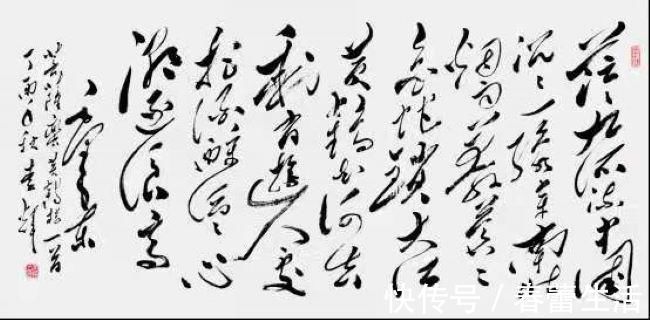 茫茫九派流中国
沉沉一线穿南北
烟雨莽苍苍
龟蛇锁大江
黄鹤知何去
剩有游人处
把酒酹滔滔心
潮逐浪高
毛泽东
菩萨蛮黄鹤楼一首
丁酉秋
快传号 / 春蕾生活